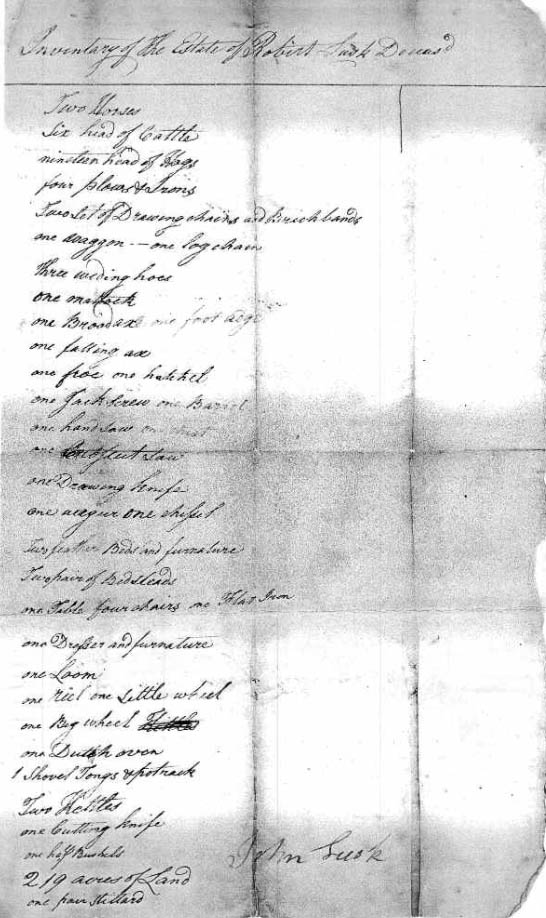 Inventary of the Estate of Robert Lusk Deceasd
Two Horses
Six head of Cattle
nineteen head of Hogs
four plows & Irons
Two Set of Drawing chains and Brichbands
one waggon -- one log chain
three weding hoes
one mattock
one Broadax one foot adge
one falling ax
one froe one hatchel
one Jack Screw one Barrel
one hand Saw one
one Saw
one Drawing knife
one augur one chissel
Two feather Beds and furnature
Two pair of Bedsteads
one Table four chairs one Flat Iron
one Dresser and furnature
one Loom
one riel one Little wheel
one Big wheel
one Dutch oven
1 Shovel Tongs & potrack
Two Kettles
one Cutting knife
one half Bushels
John Lusk
219 acres of Land
one pair Stillard